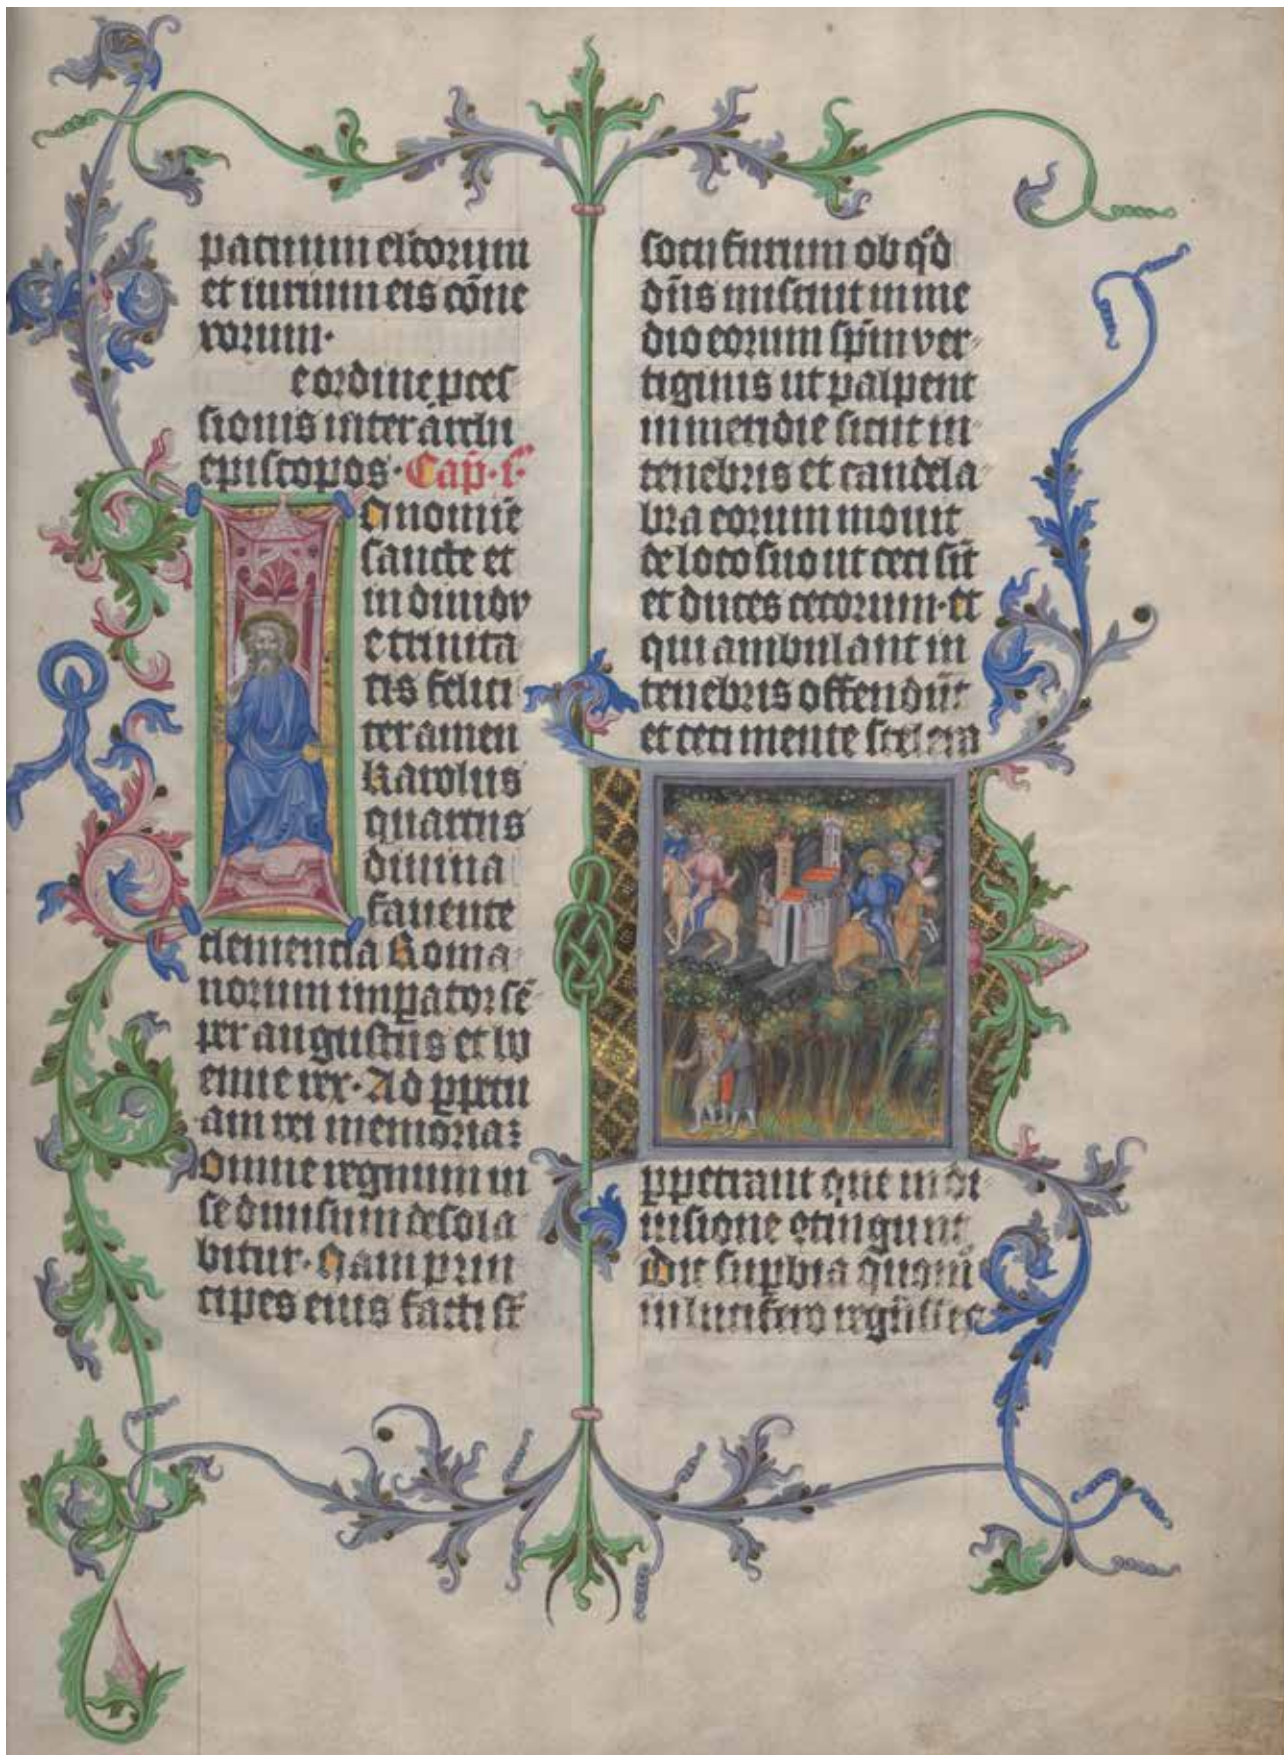 patinum elcorum
et iurium eis cōne
xorum·
e ordine p̄ces
sionis inter archi
episcopos· Cap̄·i·
n nomīe
sancte et
indiuidv
e trinita
tis felici
ter amen
karolus
quartus
diuina
fauente
clemencia Roma
norum imp̱ator sē
per augustus et bo
emie rex· Ad p̱petu
am rei memoriaꝫ
Omne regnum in
se diuisum desola
bitur· Nam prin
cipes eius facti sūt
socij furum ob qd̄
dn̄s miscuit in me
dio eorum sp̄m ver
tiginis ut palpent
in meridie sicut in
tenebris et candela
bra eorum mouit
de loco suo ut ceci sīt
et duces cecorum· et
qui ambulant in
tenebris offendūt
et ceci mente scelera
p̱petrant que in di
uisione ꝯtingunt
Dic sup̱bia quomō
in lucifero regnasses